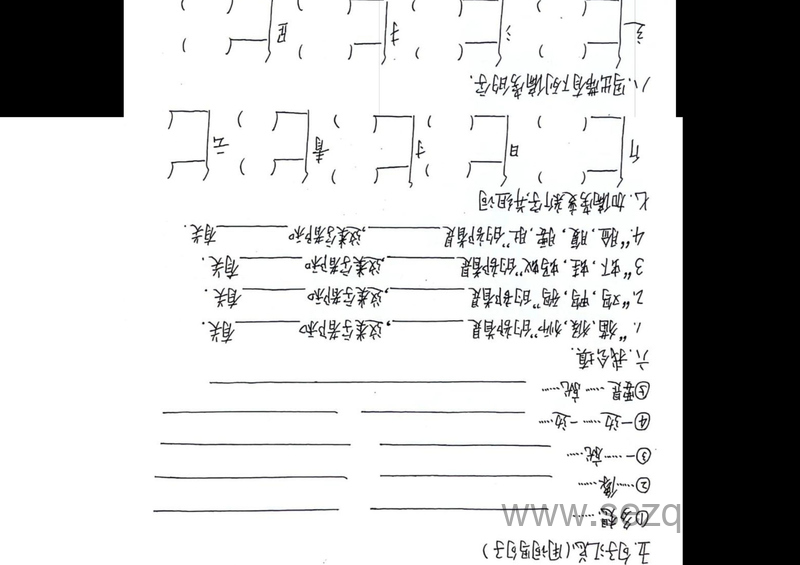 五.句子汇总(用词写句子)
①多想……
②……像……
③一……就……
④一边……一边……
⑤要是……就……
六.我会填.
1."猫,猴,狮"的部首是________,这类字都和________有关.
2."鸡,鸭,鹅"的部首是________,这类字都和________有关.
3."虾,蛙,蚂蚁"的部首是________,这类字都和________有关.
4."脸,腹,腰,肚"的部首是________,这类字都和________有关.
七.加偏旁变新字,并组词
日 ( ) ( ) 青 ( ) 云 ( )
八.写出带有下列偏旁的字.
辶 ( ) 氵 ( ) 扌 ( ) ( )
www.sezq